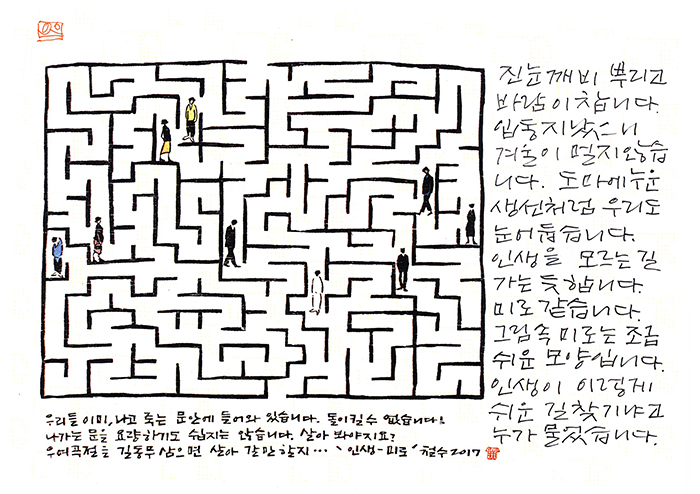 진눈깨비 뿌리고
바람이 찹니다.
입동지났으니
겨울이 멀지않습
니다. 도마에누운
생선처럼 우리도
눈어둡습니다.
인생을 모르는 길
가는 듯 합니다.
미로 같습니다.
그림속 미로는 조금
쉬운 모양입니다.
인생이 이렇게
쉬운 길찾기냐고
누가 물었습니다.
우리들 이미, 나고 죽는 문안에 들어와 있습니다. 돌이킬수 없습니다!
나가는 문을 요량하기도 쉽지는 않습니다. 살아 봐야지요?
우여곡절을 길동무 삼으면 살아 갈만 할지 … '인생-미로' 철수 2017